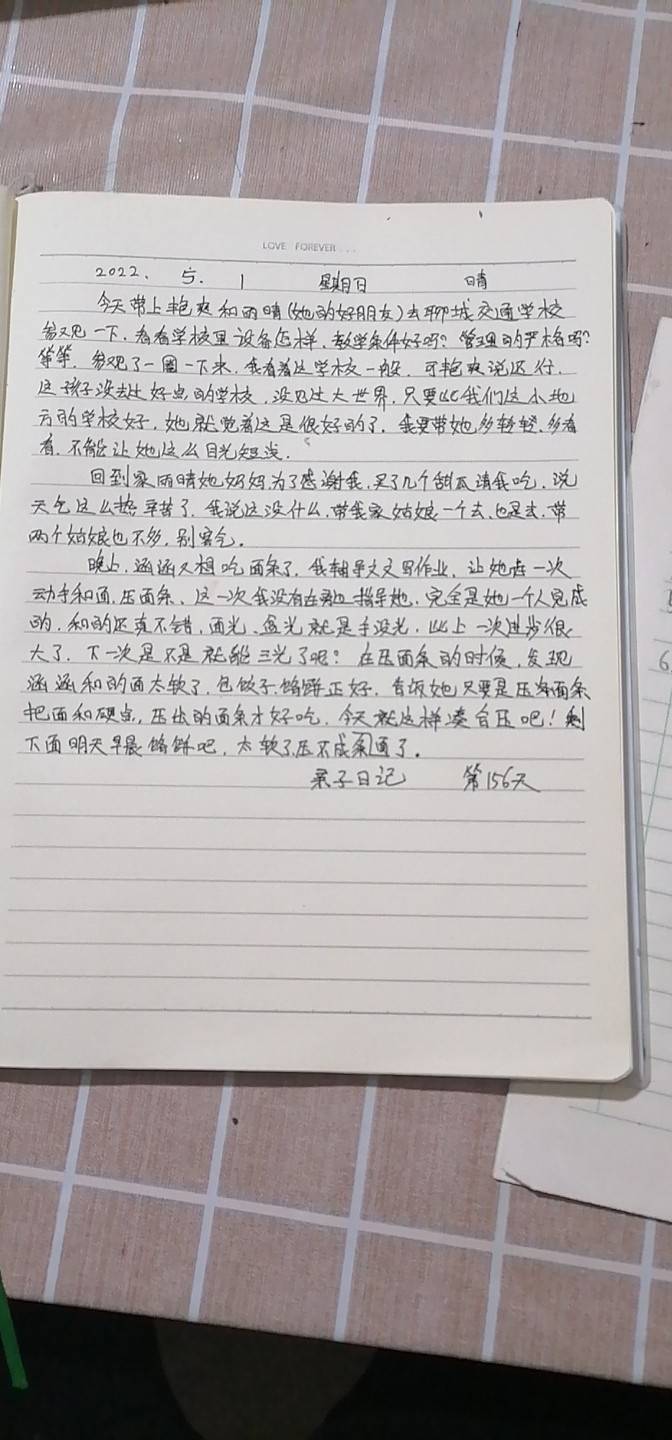 LOVE FOREVER...
2022. 5. 1 星期日 晴
今天带上艳爽和雨晴(她的好朋友)去聊城交通学校
参观一下,看看学校里设备怎样,教学条件好吗?管理的严格吗?
等等。参观了一圈下来,我看着这学校一般,可艳爽说还行.
这孩子没去过好点的学校,没见过大世界,只要比我们这小地
方的学校好,她就觉着这是很好的了,我要带她多转转,多看
看,不能让她这么目光短浅.
回到家雨晴她妈妈为了感谢我,买了几个甜瓜请我吃,说
天气这么热辛苦了,我说这没什么,带我家姑娘一个去,也是去,带
两个姑娘也不多,别客气。
晚上,涵涵又想吃面条了,我辅导文文写作业,让她去一次
动手和面,压面条、这一次我没有在旁边指导她,完全是她一个人完成
的,和的还真不错,面光、盆光就是手没光,比上一次进步很
大了,下一次是不是就能三光了呢?在压面条的时候,发现
涵涵和的面太软了,包饺子、馅饼正好,告诉她只要是压
把面和硬点,压出的面条才好吃,今天就这样凑合压吧!剩
下面明天早晨馅饼吧,太软了压不成面了。
亲子日记 第156天
6